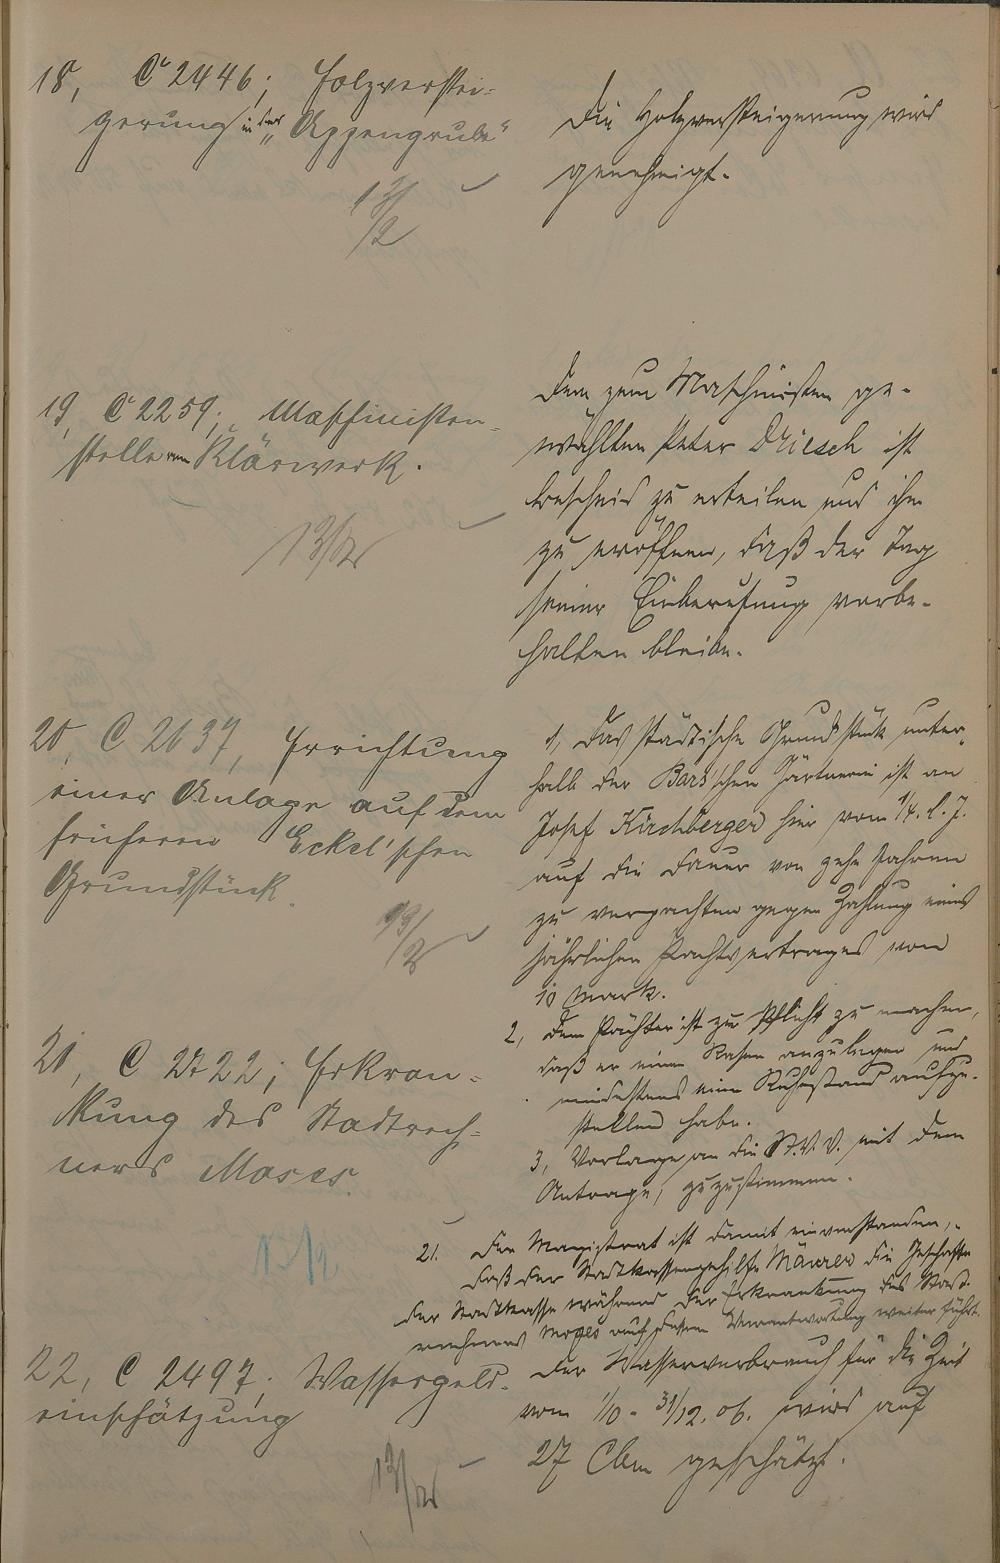 18, C 2446; Holzverstei-
gerung in der „Appengrube“
13/2
Die Holzversteigerung wird
genehmigt.
19, C 2259; Maschinisten-
stelle am Klärwerk.
13/2
Dem zum Maschinisten ge-
wählten Peter Driesch ist
Bescheid zu erteilen und ihm
zu eröffnen, daß der Tag
seiner Einberufung vorbe-
halten bleibe.
20, C 2637, Errichtung
einer Anlage auf dem
früheren Eckel'schen
Grundstück.
13/2
1, Das städtische Grundstück unter-
halb der Bark'schen Gärtnerei ist an
Josef Kirchberger hier vom 1/4. l. J.
auf die Dauer von zehn Jahren
zu verpachten gegen Zahlung eines
jährlichen Pachtvertrages von
10 Mark.
2, Dem Pächter ist zur Pflicht zu machen,
daß er einen Rasen anzulegen und
mindestens eine Ruhestand aufzu-
stellen habe.
3, Vorlage an die St.V.V. mit dem
Antrage, zuzustimmen.
21, C 2722; Erkran-
kung des Stadtrech-
ners Moses.
13/2
21. Der Magistrat ist damit einverstanden,
daß der Stadtkassengehilfe Maurer die Geschäfte
der Stadtkasse während der Erkrankung des Stadt-
rechners Moses auf dessen Verantwortung weiter führt.
22, C 2497; Wassergeld-
einschätzung
13/2
Der Wasserverbrauch für die Zeit
vom 1/10 - 31/12. 06. wird auf
27 Cbm geschätzt.